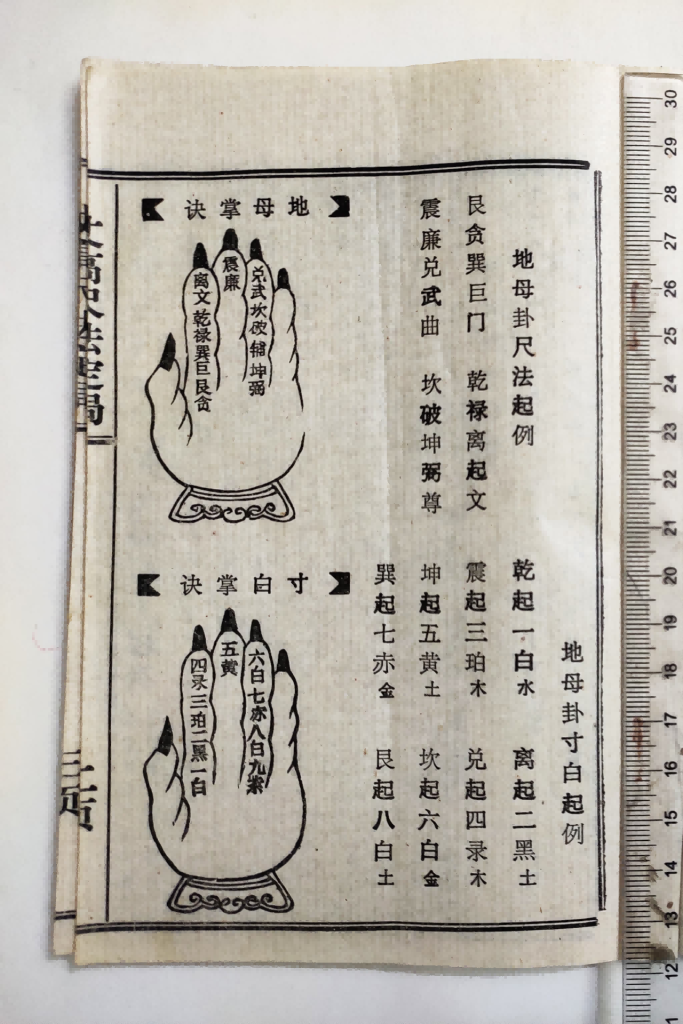 地母卦尺法起例
艮贪巽巨门 乾禄离起文
震廉兑武曲 坎破坤弼尊
地母卦寸白起例
乾起一白水 离起二黑土
震起三珀木 兑起四录木
坤起五黄土 坎起六白金
巽起七赤金 艮起八白土
地母掌诀
兑武坎破辅坤弼
震廉
离文乾禄巽巨艮贪
寸白掌诀
六白七赤八白九紫
五黄
四录三珀二黑一白
30
29
28
27
26
25
24
23
22
21
20
19
18
17
16
15
14
13
12